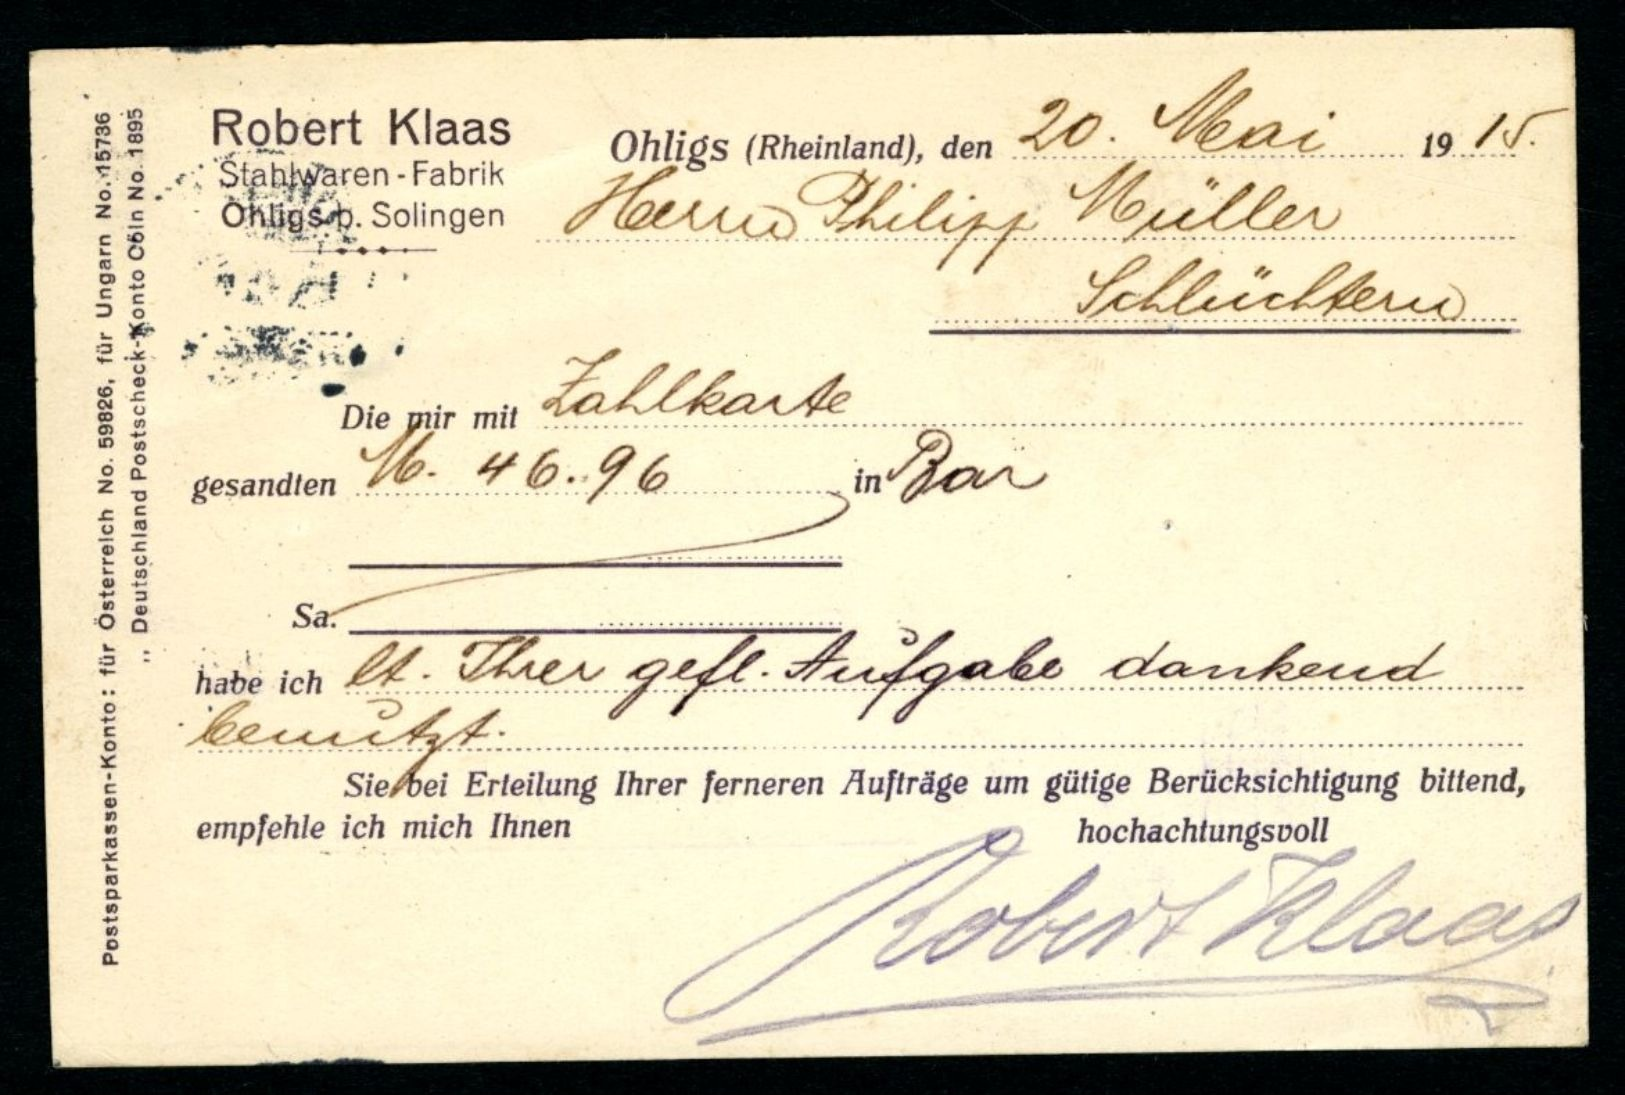 Postsparkassen-Konto: für Österreich No. 59826, für Ungarn No. 15736
„ Deutschland Postscheck-Konto Cöln No. 1895
Robert Klaas
Stahlwaren-Fabrik
Ohligs b. Solingen
Ohligs (Rheinland), den 20. Mai 1915.
Herrn Philipp Müller
Schlüchtern
Die mir mit Zahlkarte
gesandten M. 46.96 in Bar
Sa.
habe ich lt. Ihrer gefl. Aufgabe dankend
benutzt.
Sie bei Erteilung Ihrer ferneren Aufträge um gütige Berücksichtigung bittend,
empfehle ich mich Ihnen hochachtungsvoll
Robert Klaas